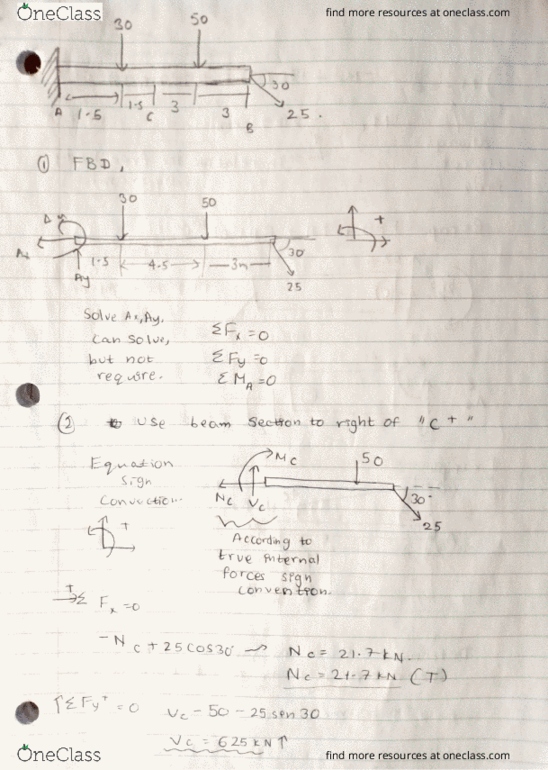 OneClass
find more resources at oneclass.com
30
50
30
A
1.5
1.5
C
3
3
B
25.
① FBD,
30
50
Ax
Ay
1.5
4.5
3m
30
25
+
Solve Ax, Ay.
can solve,
but not
require.
ΣFx=0
ΣFy=0
ΣMA=0
② Use beam section to right of "C+"
Equation
sign
convection.
+
Mc
50
Nc
Vc
30°
25
According to
true internal
forces sign
convention.
→ Σ Fx=0
-Nc + 25cos30
Nc = 21.7 kN.
Nc = 21.7 kN (T)
↑ΣFy+ = 0
Vc - 50 - 25 sen 30
Vc = 625 kN ↑
OneClass
find more resources at oneclass.com